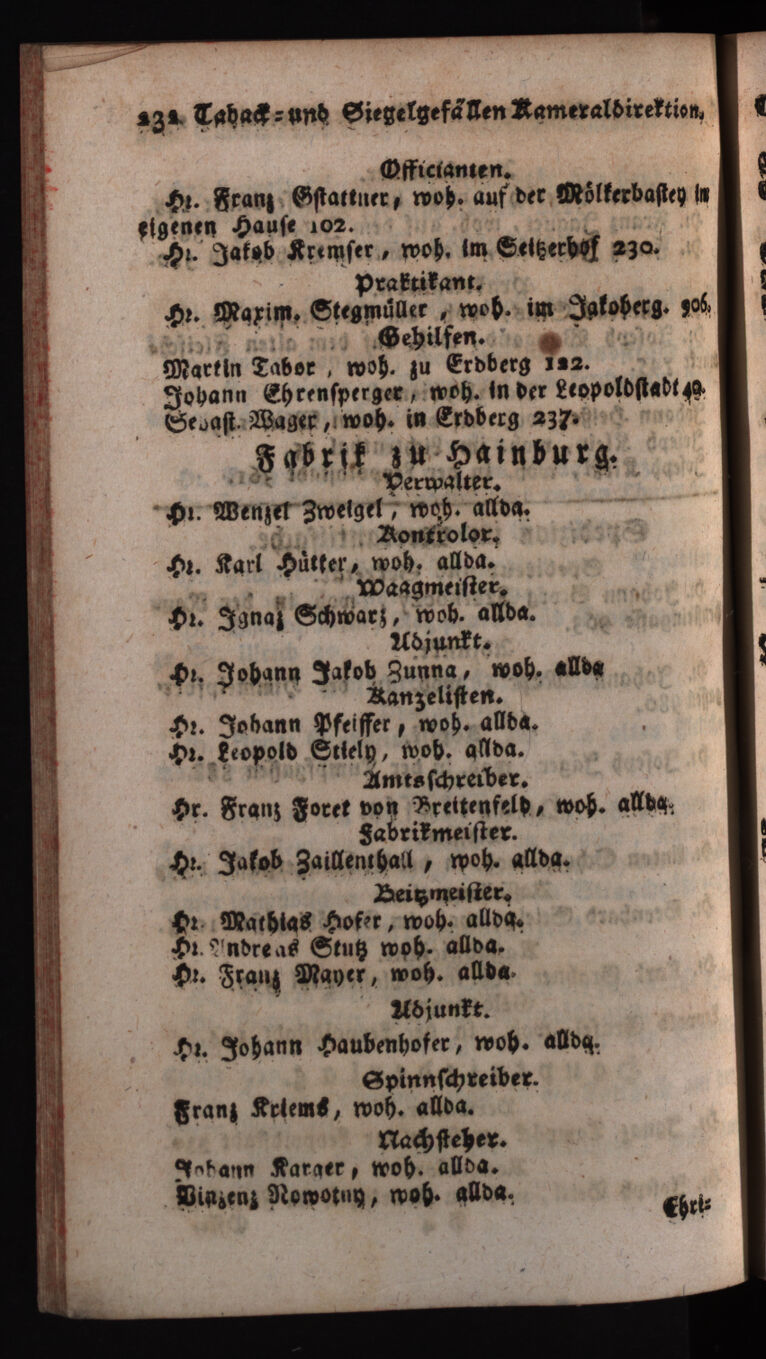 232 Taback- und Siegelgefällen Kameraldirektion.
Officianten.
Hr. Franz Gstattner, woh. auf der Mölkerbastey in
eigenen Hause 102.
Hr. Jakob Kremser, woh. im Seitzerhof 230.
Praktikant.
Hr. Maxim. Stegmüller, woh. im Jakoberg. 906.
Gehilfen.
Martin Tabor, woh. zu Erdberg 122.
Johann Ehrensperger, woh. in der Leopoldstadt 49.
Sebast. Wager, woh. in Erdberg 237.
Fabrik zu Hainburg.
Verwalter.
Hr. Wenzel Zweigel, woh. allda.
Kontrolor.
Hr. Karl Hütter, woh. allda.
Waagmeister.
Hr. Ignaz Schwarz, woh. allda.
Adjunkt.
Hr. Johann Jakob Zunna, woh. allda
Kanzelisten.
Hr. Johann Pfeiffer, woh. allda.
Hr. Leopold Stiely, woh. allda.
Amtsschreiber.
Hr. Franz Foret von Breitenfeld, woh. allda.
Fabrikmeister.
Hr. Jakob Zaillenthall, woh. allda.
Beitzmeister.
Hr. Mathias Hofer, woh. allda.
Hr. Andreas Stutz woh. allda.
Hr. Franz Mayer, woh. allda.
Adjunkt.
Hr. Johann Haubenhofer, woh. allda.
Spinnschreiber.
Franz Kriems, woh. allda.
Nachsteher.
Johann Karger, woh. allda.
Vinzenz Nowotny, woh. allda.
Ehri-